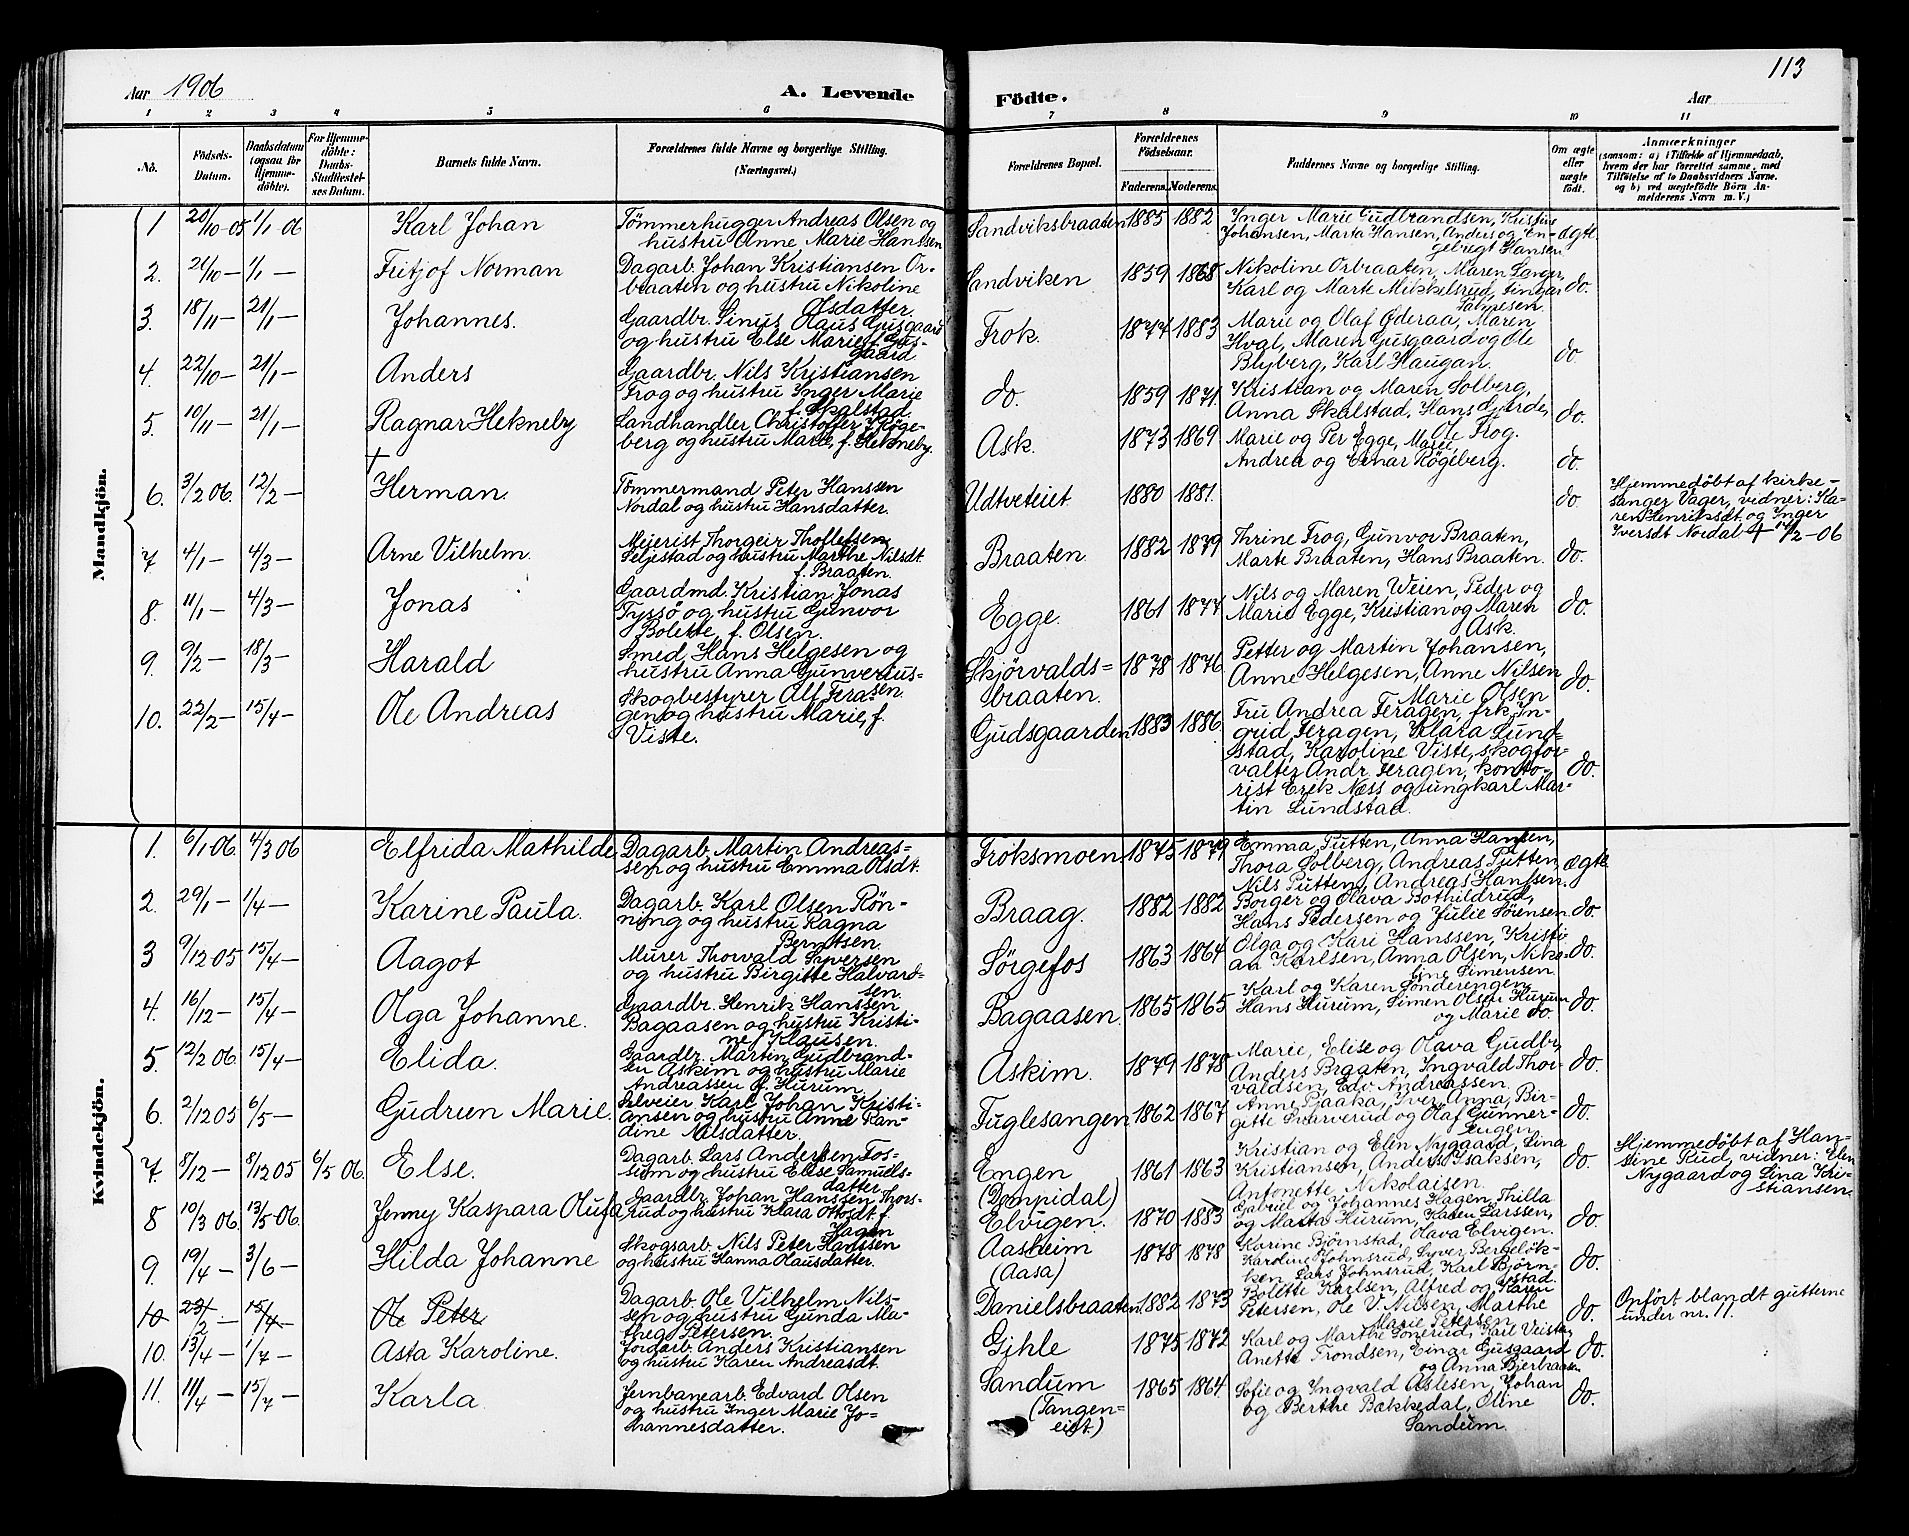 113
Aar 1906
A. Levende Födte.
Aar
1 2 3 4 5 6 7 8 9 10 11
No.
Födsels-Datum.
Daabsdatum (ogsaa for Hjemme-döbte).
For Hjemme-döbte: Daabs-Stadfæstelses Datum.
Barnets fulde Navn.
Forældrenes fulde Navne og borgerlige Stilling. (Næringsvei.)
Forældrenes Bopæl.
Forældrenes Födselsaar.
Faderens. Moderens.
Faddernes Navne og borgerlige Stilling.
Om ægte eller uægte födt.
Anmærkninger
(saasom: a) i Tilfælde af Hjemmedaab, hvem der har forrettet samme, med Tilföielse af to Daabsvidners Navne. og b) ved uægtefödte Börn Anmelderens Navn m. V.)
Mandkjön.
1 20/10-05 1/1 06 Karl Johan
Tömmerhugger Andreas Olsen og
hustru Anne Marie Hansen
Sandviksbraaten 1885 1882
Inger Marie Gudbrandsen, Kristine
Johansen, Marta Hansen, Anders og En-
gebregt Hansen
ægte
2. 21/10- 1/1- Fritjof Norman
Dagarb. Johan Kristiansen Or-
braaten og hustru Nikoline
Olsdatter.
Sandviken 1859 1868
Nikoline Orbraaten, Maren
Karl og Marte Mikkelsrud,
do.
3. 18/11- 21/1- Johannes.
Gaardbr. Sinus Olaus Gusgaard
og hustru Else Marie f. Gus-
gaard
Frok. 1874 1883
Marie og Olaf Öderaa, Maren
Hval, Maren Gusgaard og Ole
Blyberg, Karl Haugan.
do
4. 22/10- 21/1- Anders
Gaardbr. Nils Kristiansen
Frog og hustru Inger Marie
f. Skalstad.
do. 1859 1871.
Kristian og Maren Solberg,
Anna Skalstad, Hans Gjerde,
Ole Frog.
do.
5. 10/11- 21/1- Ragnar Hekneby
Landhandler Christoffer Röge-
berg og hustru Marie, f. Hekneby.
Ask. 1873 1869
Marie og Per Egge, Marie,
Andrea og Einar Rögeberg.
do.
6. 3/2 06. 12/2- † Herman.
Tömmermand Peter Hanssen
Nordal og hustru Hansdatter.
Udtveteiet 1880 1881.
do
Hjemmedöbt af kirke-
sanger Vager, vidner: Ka-
ren Henriksdt. og Inger
Iversdt Nordal † 14/2-06
7. 4/1- 4/3- Arne Vilhelm.
Meierist Thorgeir Thoflefsen
Seljestad og hustru Marthe Nilsdt.
f. Braaten.
Braaten 1882 1879
Thrine Frog, Gunvor Braaten,
Marte Braaten, Hans Braaten.
do.
8. 11/1- 4/3- Jonas
Gaardmd. Kristian Jonas
Tyssö og hustru Gunvor
Bolette f. Olsen.
Egge. 1861 1877
Nils og Maren Weien, Peder og
Marie Egge, Kristian og Maren
Ask
do.
9. 9/2- 18/3- Harald
Smed Hans Helgesen og
hustru Anna Gunverius-
sen.
Skjörvalds-
braaten. 1878 1876
Petter og Martin Johansen,
Anne Helgesen, Anne Nilsen
Marie Olsen
do.
10. 22/2- 15/4- Ole Andreas
Skogbestyrer Alf Fera-
gen og hustru Marie, f.
Viste.
Gudsgaarden 1883 1886
Fru Andrea Feragen, frk. In-
grid Feragen, Klara Lund-
stad, Karoline Viste, skogfor-
valter Andr. Feragen, konto-
rist Erik Næss og ungkarl Mar-
tin Lundstad.
do.
Kvindekjön.
1. 6/1 06. 4/3 06 Elfrida Mathilde
Dagarb. Martin Andreas-
sen og hustru Emma Olsdt.
Froksmoen 1875 1879
Emma Putten, Anna Hansen,
Thora Solberg, Andreas Putten,
Nils Putten, Andreas Hansen.
ægte
2. 29/1- 1/4- Karine Paula.
Dagarb. Karl Olsen Rön-
ning og hustru Ragna
Berntsen.
Braag. 1882 1882
Borger og Olava Bothildrud,
Hans Pedersen og Julie Sörensen
do.
3 9/12 05 15/4- Aagot
Murer Thorvald Syversen
og hustru Birgitte Halvard-
sen.
Sörgefos 1863 1864
Olga og Kari Hanssen, Kristi-
an Karlsen, Anna Olsen, Niko-
line Simensen.
do.
4. 16/12- 15/4- Olga Johanne.
Gaardbr. Henrik Hanssen
Bagaasen og hustru Kristi-
ne Klausen.
Bagaasen. 1865 1865
Karl og Karen Sönderengen,
Hans Hurum, Simen Olsen Hurum
og Marie do.
do.
5. 12/2 06. 15/4- Elida.
Gaardbr. Martin Gudbrand-
sen Askim og hustru Marie
Andreassen f. Hurum.
Askim. 1879 1878
Marie, Elise og Olava Gudbr.,
Anders Braaten, Ingvald Thor-
valdsen, Edv. Andreassen.
do.
6. 2/12 05 6/5- Gudrun Marie.
Selveier Karl Johan Kristi-
ansen og hustru Anne Ran-
dine Nilsdatter.
Fuglesangen 1862 1867
Anne Paaka, Iver, Anna, Bir-
gitte Svarverud og Olaf Gunner-
engen
do.
7. 8/12- 8/12 05 6/5 06. Else.
Dagarb. Lars Andersen Fos-
sum og hustru Else Samuels-
datter
Engen
(Dompidal) 1861 1863
Kristian og Elen Nygaard, Lina
Kristiansen, Anders Isaksen,
Antonette Nikolaisen.
do.
Hjemmedöbt af Han-
sine Rud, vidner: Elen
Nygaard og Lina Kri-
stiansen.
8 10/3 06. 13/5 06. Jenny Kaspara Olufa
Gaardbr. Johan Hanssen Thors-
rud og hustru Klara Ottosdt. f.
Hagen
Elvigen. 1870 1883
Gabriel og Johannes Hagen, Thilla
og Marta Hurum, Karen Larssen,
Karine Björnstad, Olava Elvigen.
do.
9. 19/4- 3/6- Hilda Johanne
Skogsarb. Nils Peter Hanssen
og hustru Hanna Olausdatter.
Aasheim
(Aasa) 1878 1878
Karoline Johnsrud, Syver Bergelök-
ken, Lars Johnsrud, Karl Björn-
stad.
do.
10 23/2- 15/4- Ole Peter
Dagarb. Ole Vilhelm Nils-
sen og hustru Gunda Ma-
thea Petersen.
Danielsbraaten 1882 1873
Bolette Karlsen, Alfred og Karen
Petersen, Ole V. Nilsen, Marthe
Marie Petersen
do.
Opfört blandt gutterne
under nr. 11.
10. 13/4- 1/7- Asta Karoline.
Jordarb. Anders Kristiansen
og hustru Karen Andreasdt.
Gihle 1875 1872
Karl og Marthe Gonerud, Karl Veista,
Anette Trondsen, Einar Gusgaard
og Anna Bjerbraaten
do.
11. 11/4- 15/7- Karla.
Jernbanearb. Edvard Olsen
og hustru Inger Marie Jo-
hannesdatter.
Sandum
(Tangen-
eigt.) 1865 1864.
Sofie og Ingvald Aslesen, Johan
og Berthe Bækkedal, Oline
Sandum.
do.